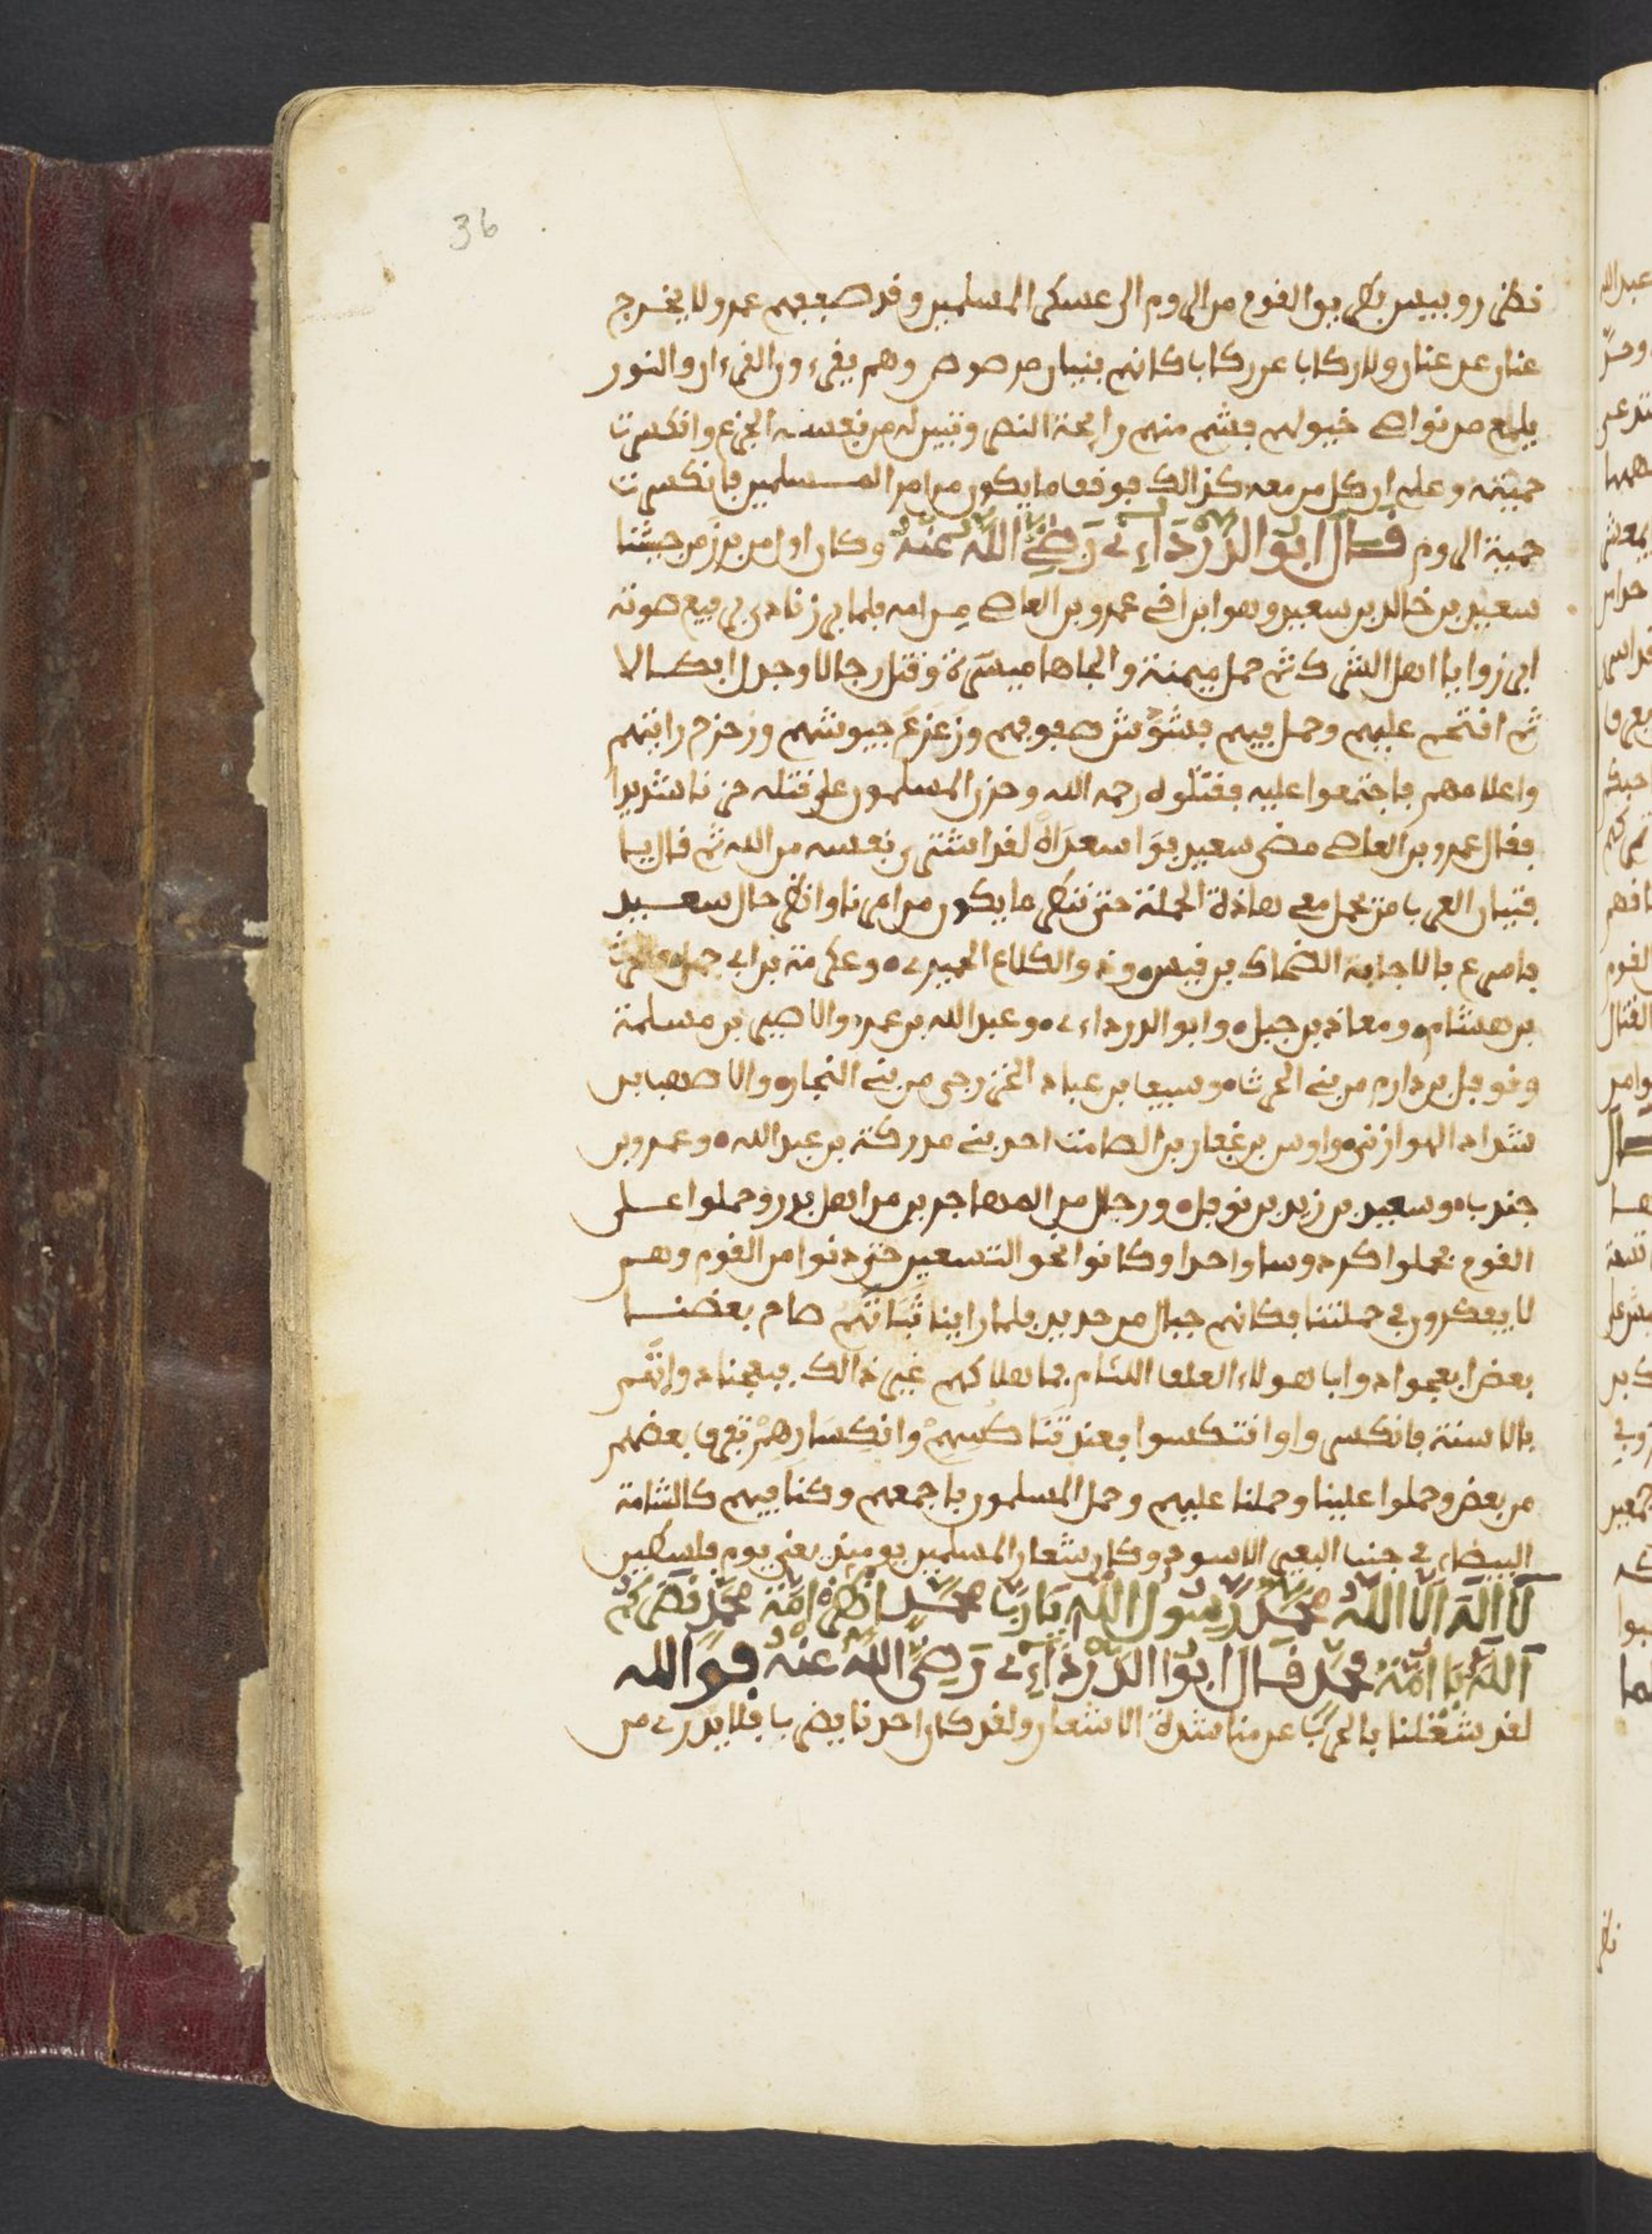 36
نظر روبيس بطريق القوم من الروم الى عسكر المسلمين وقد صففهم عمرو لا يخرج
عنان عن عنان ولا ركاب عن ركاب كانهم بنيان مرصوص وهم يقرءون القرءان والنور
يلمع من نواصي خيولهم فشم منهم رايحة النصر وتبين له من نفسه الجزع وانكسرت
حميته وعلم ان كل من معه كذالك فوقف ما يكون من امر المسلمين فانكسرت
حمية الروم قال ابو الدرداءي رضي الله عنه وكان اول من برز من جيشنا
سعيد بن خالد بن سعيد وهو ابن اخي عمرو بن العاصي من امه فلما برز نادى برفيع صوته
ابرزوا يا اهل الشرك ثم حمل ميمنة والجاها ميسرة وقتل رجالا وجدل ابطالا
ثم اقتحم عليهم وحمل فيهم فشوش صفوفهم وزعزع جيوشهم وزحزح رايتهم
واعلامهم فاجتمعوا عليه فقتلوه رحمه الله وحزن المسلمون على قتله حزنا شديدا
فقال عمرو بن العاصي مضى سعيد فوا سعداه لقد اشترى نفسه من الله ثم قال يا
فتيان العرب من يحمل معي هاذه الحملة حتى ننظر ما يكون من امرنا وانظر حال سعيد
فاسرع بالاجابة الضحاك بن قيس وذو الكلاع الحميري وعكرمة بن ابي جهل والحرث
بن هشام ومعاذ بن جبل وابو الدرداءي وعبد الله بن عمر والاصيد بن مسلمة
ونوفل بن دارم من بني الحرث وسيف بن عباد الخزرجي من بني النجار والاصهب بن
شداد الهوازني واوس بن غفار بن الصامت احد بني مدركة بن عبد الله وعمرو بن
جندب وسعيد بن زيد بن نوفل ورجال من المهاجرين من اهل بدر وحملوا على
القوم فحملوا كردوسا واحدا وكانوا نحو التسعين حتى دنوا من القوم وهم
لا يفكرون في حملتنا فكانهم جبال من حديد فلما راينا ثباتهم صاح بعضنا
بعضا بعجوا دواب هولاء العلف اللئام فما هلاكهم غير ذالك فبعجنا دوابهم
بالاسنة فانكسروا وانتكسوا فعند تناكسهم وانكسارهم تفرق بعضهم
من بعض وحملوا علينا وحملنا عليهم وحمل المسلمون باجمعهم وكنا فيهم كالشامة
البيضاء في جنب البعير الاسود وكان شعار المسلمين يوميذ يعني يوم فلسطين
لا اله الا الله محمد رسول الله يا رب محمد انصر امة محمد نصركم
الله يا امة محمد قال ابو الدرداءي رضي الله عنه فو الله
لقد شغلنا بالحرب عن مناشدة الاشعار ولقد كان احدنا يضرب فلا يدري من